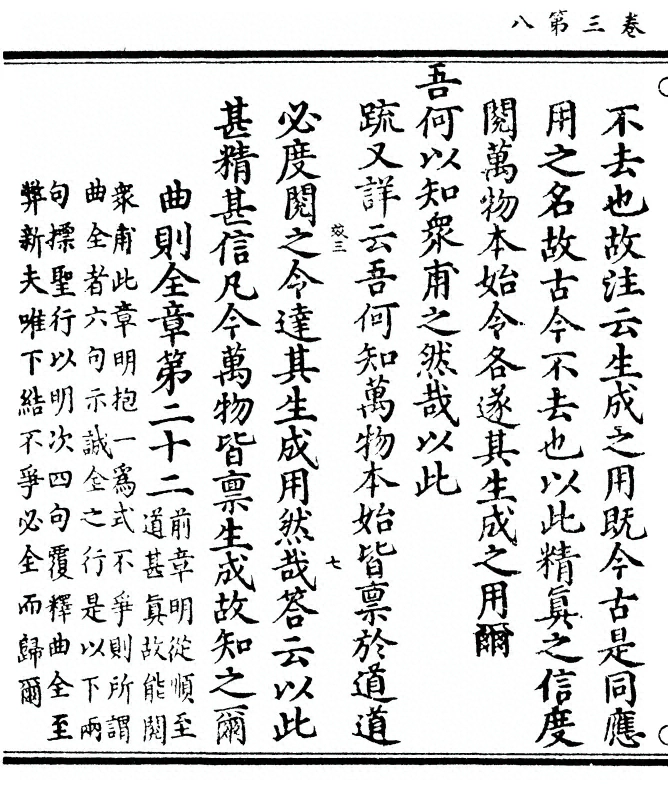 卷三第八
不去也故注云生成之用既今古是同應
用之名故古今不去也以此精眞之信度
閱萬物本始令各遂其生成之用爾
吾何以知衆甫之然哉以此
疏又詳云吾何知萬物本始皆禀於道道
必度閱之令達其生成用然哉答云以此
效三
七
甚精甚信凡今萬物皆禀生成故知之爾
曲則全章第二十二
前章明從順至
道甚眞故能閱
衆甫此章明抱一爲式不爭則所謂
曲全者六句示誠全之行是以下兩
句摽聖行以明次四句覆釋曲全至
弊新夫唯下結不爭必全而歸爾